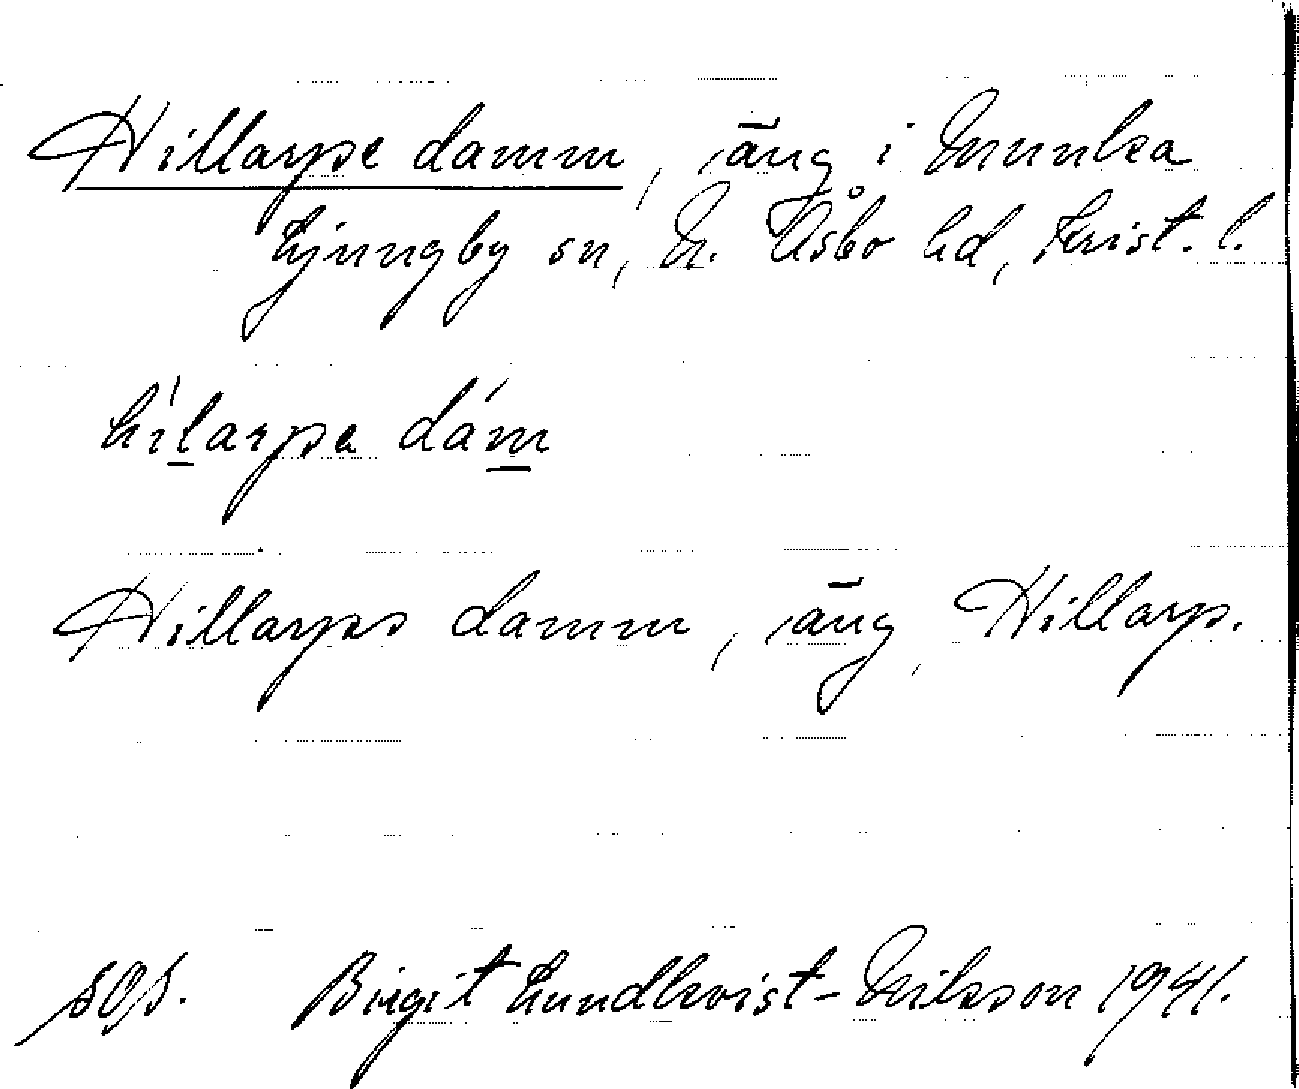 Hillarpe damm, äng i Munka
Ljungby sn, N. Åsbo hd, Krist. l.
hílarpa dám
Hillarps damm, äng, Hillarp.
Birgit Lundkvist-Nilsson 1941.